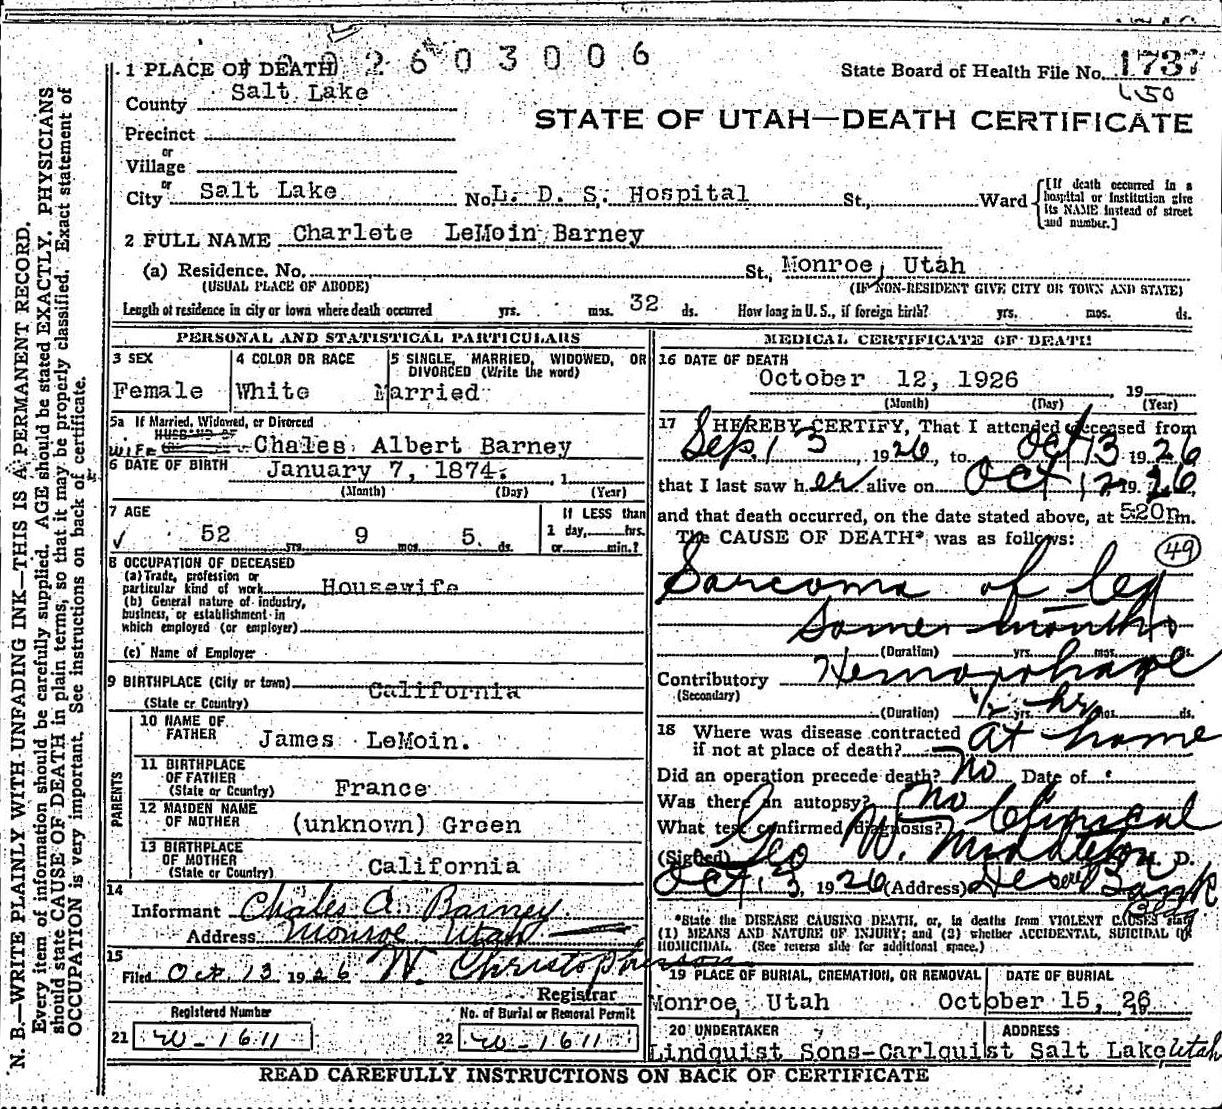 2603006
1 PLACE OF DEATH
State Board of Health File No. 1737
County Salt Lake
STATE OF UTAH—DEATH CERTIFICATE
Precinct
or
Village
or
City Salt Lake No. L. D. S. Hospital St., Ward
[If death occurred in a hospital or institution give its NAME instead of street and number.]
2 FULL NAME Charlote LeMoin Barney
(a) Residence. No. St., Monroe, Utah
(USUAL PLACE OF ABODE) (IF NON-RESIDENT GIVE CITY OR TOWN AND STATE)
Length of residence in city or town where death occurred yrs. mos. 32 ds. How long in U. S., if foreign birth? yrs. mos. ds.
PERSONAL AND STATISTICAL PARTICULARS
3 SEX
Female
4 COLOR OR RACE
White
5 SINGLE, MARRIED, WIDOWED, OR DIVORCED (Write the word)
Married
5a If Married, Widowed, or Divorced
HUSBAND OF
wife Chales Albert Barney
6 DATE OF BIRTH January 7, 1874. 1
(Month) (Day) (Year)
7 AGE
52 yrs. 9 mos. 5. ds.
If LESS than
1 day, hrs.
or min.?
8 OCCUPATION OF DECEASED
(a) Trade, profession or
particular kind of work Housewife
(b) General nature of industry,
business, or establishment in
which employed (or employer)
(c) Name of Employer
9 BIRTHPLACE (City or town) California
(State or Country)
PARENTS
10 NAME OF
FATHER James LeMoin.
11 BIRTHPLACE
OF FATHER
(State or Country) France
12 MAIDEN NAME
OF MOTHER (unknown) Green
13 BIRTHPLACE
OF MOTHER
(State or Country) California
14
Informant Chales A. Barney.
Address Monroe Utah
15
Filed Oct. 13 1926 W. Christopherson
Registrar
Registered Number
21 W-1611
No. of Burial or Removal Permit
22 W-1611
MEDICAL CERTIFICATE OF DEATH
16 DATE OF DEATH
October 12, 1926 19
(Month) (Day) (Year)
17 I HEREBY CERTIFY, That I attended deceased from
Sep. 13 1926, to Oct 13 1926
that I last saw her alive on Oct 12 1926
and that death occurred, on the date stated above, at 520 m.
The CAUSE OF DEATH* was as follows:
49
Sarcoma of leg
Some months
(Duration) yrs. mos. ds.
Contributory Hemorrhage
(Secondary)
(Duration) ½ yrs. hr mos. ds.
18 Where was disease contracted
if not at place of death? at home
Did an operation precede death? No Date of
Was there an autopsy? No
What test confirmed diagnosis? Clinical
(Signed) Geo W. Middleton M. D.
Oct. 13, 1926 (Address) Deseret Bank Bldg
*State the DISEASE CAUSING DEATH, or, in deaths from VIOLENT CAUSES state
(1) MEANS AND NATURE OF INJURY; and (2) whether ACCIDENTAL, SUICIDAL or
HOMICIDAL. (See reverse side for additional space.)
19 PLACE OF BURIAL, CREMATION, OR REMOVAL
Monroe, Utah
DATE OF BURIAL
October 15, 26
20 UNDERTAKER ADDRESS
Lindquist Sons-Carlquist Salt Lake Utah
READ CAREFULLY INSTRUCTIONS ON BACK OF CERTIFICATE
N. B.—WRITE PLAINLY WITH UNFADING INK—THIS IS A PERMANENT RECORD.
Every item of information should be carefully supplied. AGE should be stated EXACTLY. PHYSICIANS
should state CAUSE OF DEATH in plain terms, so that it may be properly classified. Exact statement of
OCCUPATION is very important. See instructions on back of certificate.